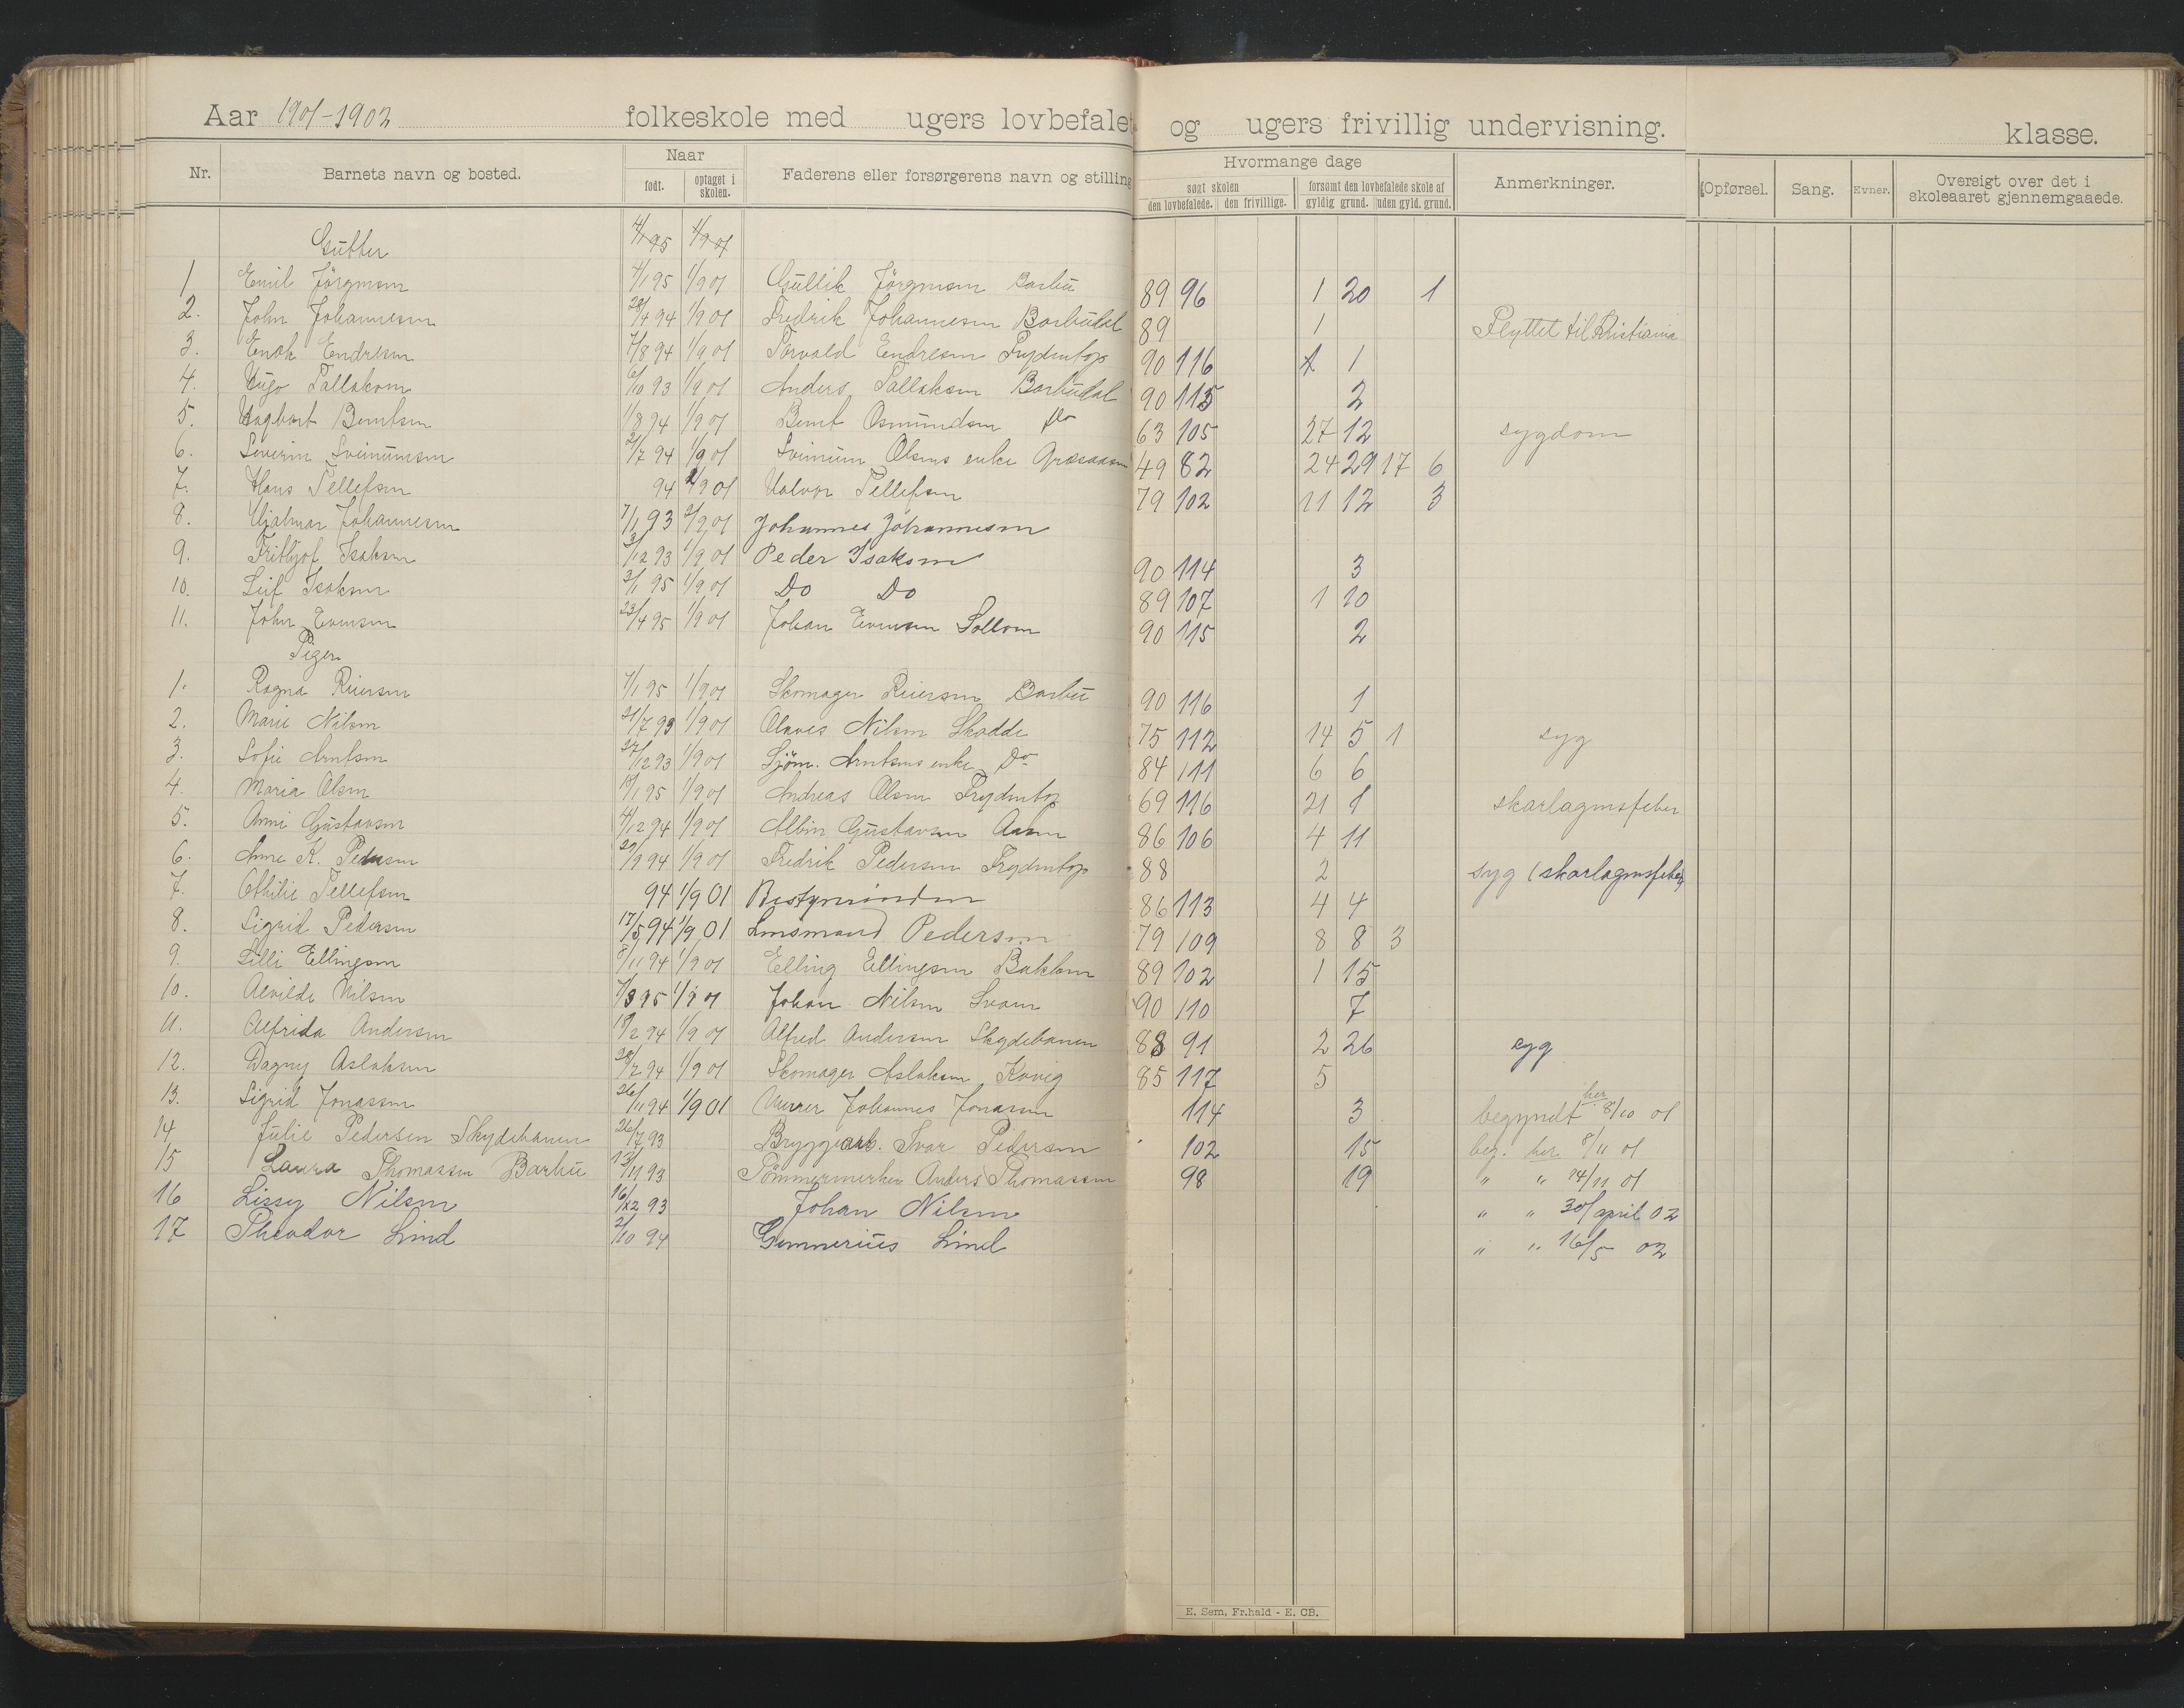 Aar 1901-1902 folkeskole med ugers lovbefalet og ugers frivillig undervisning. klasse.
Nr. Barnets navn og bosted. Naar Faderens eller forsørgerens navn og stilling Hvormange dage Anmerkninger. Opførsel. Sang. Evner. Oversigt over det i skoleaaret gjennemgaaede.
født. optaget i skolen. søgt skolen forsømt den lovbefalede skole af
den lovbefalede. den frivillige. gyldig grund. uden gyld. grund.
Gutter 4/1 95 1/9 01
1 Emil Jörgensen 4/1 95 1/9 01 Gullik Jörgensen Barbu 89 96 1 20 1
2. John Johannesen 28/4 94 1/9 01 Fredrik Johannesen Barbudal 89 1 Flyttet til Kristiania
3. Enok Endresen 7/8 94 1/9 01 Torvald Endresen Frydentop 90 116 1 1
4. Hugo Tallaksen 6/10 93 1/9 01 Anders Tallaksen Barbudal 90 115 2
5. Dagbart Berntsen 1/8 94 1/9 01 Bernt Osmundsen Do 63 105 27 12 sygdom
6. Severin Sveinumsen 21/7 94 1/9 01 Sveinum Olsens enke 49 82 24 29 17 6
7. Hans Tellefsen 94 2/9 01 Halvor Tellefsen 79 102 11 12 3
8. Hjalmar Johannesen 7/1 93 2/9 01 Johannes Johannesen
9. Fritbjof Isaksen /12 93 1/9 01 Peder Isaksen 90 114 3
10. Leif Isaksen 3/1 95 1/9 01 Do Do 89 107 1 10
11. John Evensen 23/4 95 1/9 01 Johan Evensen Sollom 90 115 2
Piger
1. Ragna Reiersen 7/1 95 1/9 01 Skomager Reiersen Barbu 90 116 1
2. Marie Nilsen 21/7 93 1/9 01 Olaves Nilsen Skodde 75 112 14 5 1 syg
3. Sofie Arntsen 27/12 93 1/9 01 Sjöm. Arntsens enke Do 84 111 6 6
4. Maria Olsen 18/1 95 1/9 01 Andreas Olsen Frydentop 69 116 21 1 skarlagensfeber
5. Anni Gustavsen 4/12 94 1/9 01 Albin Gustavsen Aasen 86 106 4 11
6. Anne K. Pedersen 29/9 94 1/9 01 Fredrik Pedersen Frydentop 88 2 syg (skarlagensfeber)
7. Othilie Tellefsen 94 1/9 01 86 113 4 4
8. Sigrid Pedersen 17/5 94 1/9 01 Linsmand Pedersen 79 109 8 8 3
9. Lilli Ellingsen 8/11 94 1/9 01 Elling Ellingsen 89 102 1 15
10. Alvilde Nilsen 7/3 95 1/9 01 Johan Nilsen 90 110 7
11. Alfrida Andersen 18/2 94 1/9 01 Alfred Andersen Skydebanen 88 91 2 26 syg
12. Dagny Aslaksen 20/2 94 1/9 01 Skomager Aslaksen Kovig 85 117 5
13. Sigrid Jonassen 26/11 94 1/9 01 Murer Johannes Jonassen 114 3 begyndt her 8/10 01
14 Julie Pedersen Skydebanen 26/7 93 Bryggearb. Ivar Pedersen 102 15 beg. her 8/11 01
15 Laura Thomassen Barbu 13/11 93 Tömmermerker Anders Thomassen 98 19 " " 14/11 01
16 Lissy Nilsen 16/12 93 Johan Nilsen " " 30/april 02
17 Theodor Lind 2/10 94 Gunnerius Lind " " 16/5 02
E. Sem, Fr.hald - E. CB.